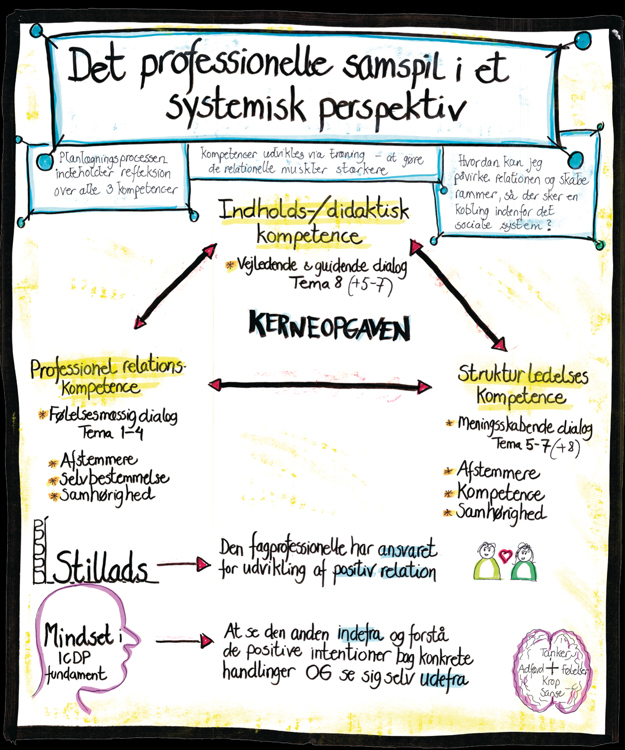 Det professionelle samspil i et
systemisk perspektiv
Planlægningsprocessen
indeholder refleksion
over alle 3 kompetencer
Kompetencer udvikles via træning - at gøre
de relationelle muskler stærkere
Hvordan kan jeg
påvirke relationen og skabe
rammer, så der sker en
kobling indenfor det
sociale system?
Indholds-/didaktisk
kompetence
* Vejledende & guidende dialog
Tema 8 (+5-7)
KERNEOPGAVEN
Professionel relations-
kompetence
* Følelsesmæssig dialog
Tema 1-4
* Afstemmere
* Selvbestemmelse
* Samhørighed
Struktur ledelses
kompetence
* Meningsskabende dialog
Tema 5-7 (+8)
* Afstemmere
* Kompetence
* Samhørighed
Stillads
Den fagprofessionelle har ansvaret
for udvikling af positiv relation
Mindset i
ICDP
fundament
At se den anden indefra og forstå
de positive intentioner bag konkrete
handlinger OG se sig selv udefra
Tanker
Adfærd + Følelser
Krop
Sanse